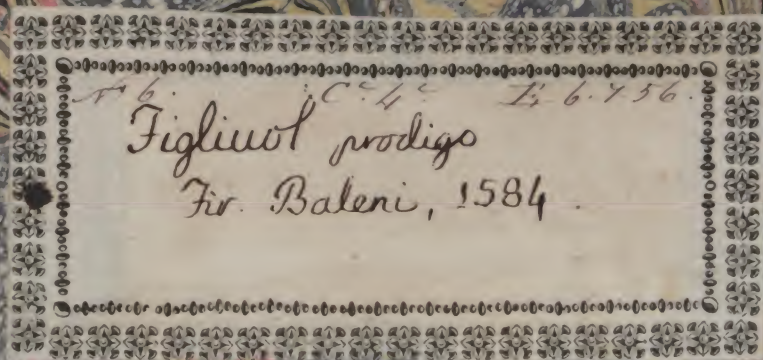 N 6. C. 4 E 6.7.56.
Figliuol prodigo
Fir. Baleni, 1584.